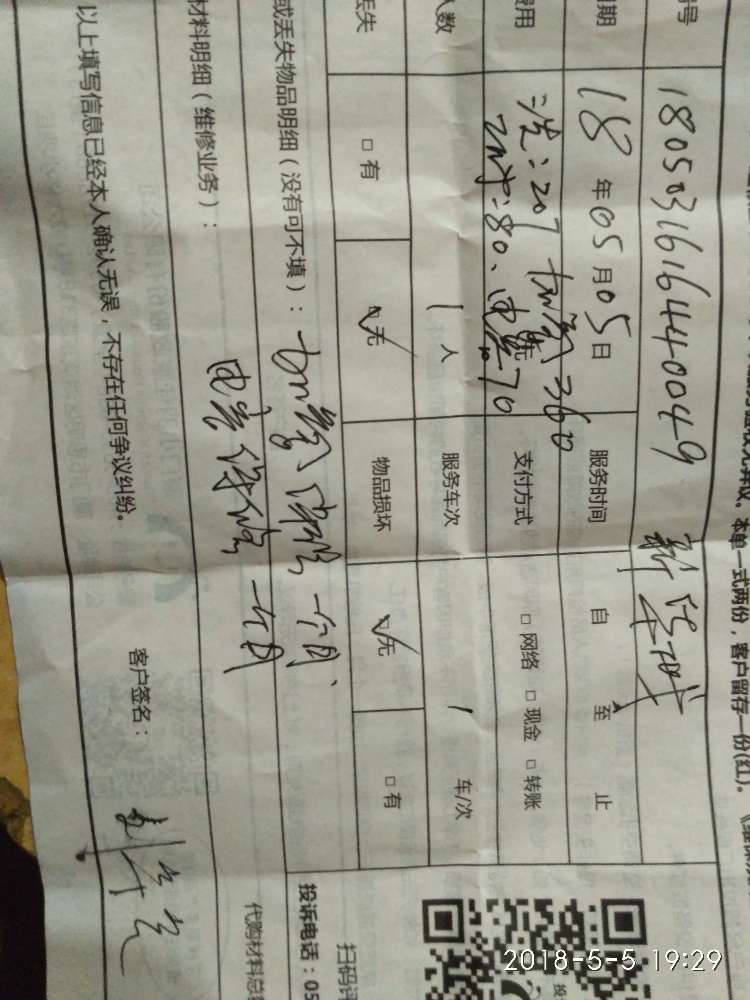 本单一式两份，客户留存一份(红)。
号 18050316164440049
期 18 年 05 月 05 日 服务时间 自 至 止
费用 洗：207 加氟360
80、电容70
支付方式 □ 网络 □ 现金 □ 转账
人数 1 人 服务车次 1 车/次
丢失 □ 有 ☑ 无 物品损坏 ☑ 无 □ 有
或丢失物品明细（没有可不填）：加氟保修一个月、
电容保修一个月
材料明细（维修业务）：
代购材料总
以上填写信息已经本人确认无误，不存在任何争议纠纷。
客户签名：
扫码评
投诉电话：05
2018-5-5 19:29